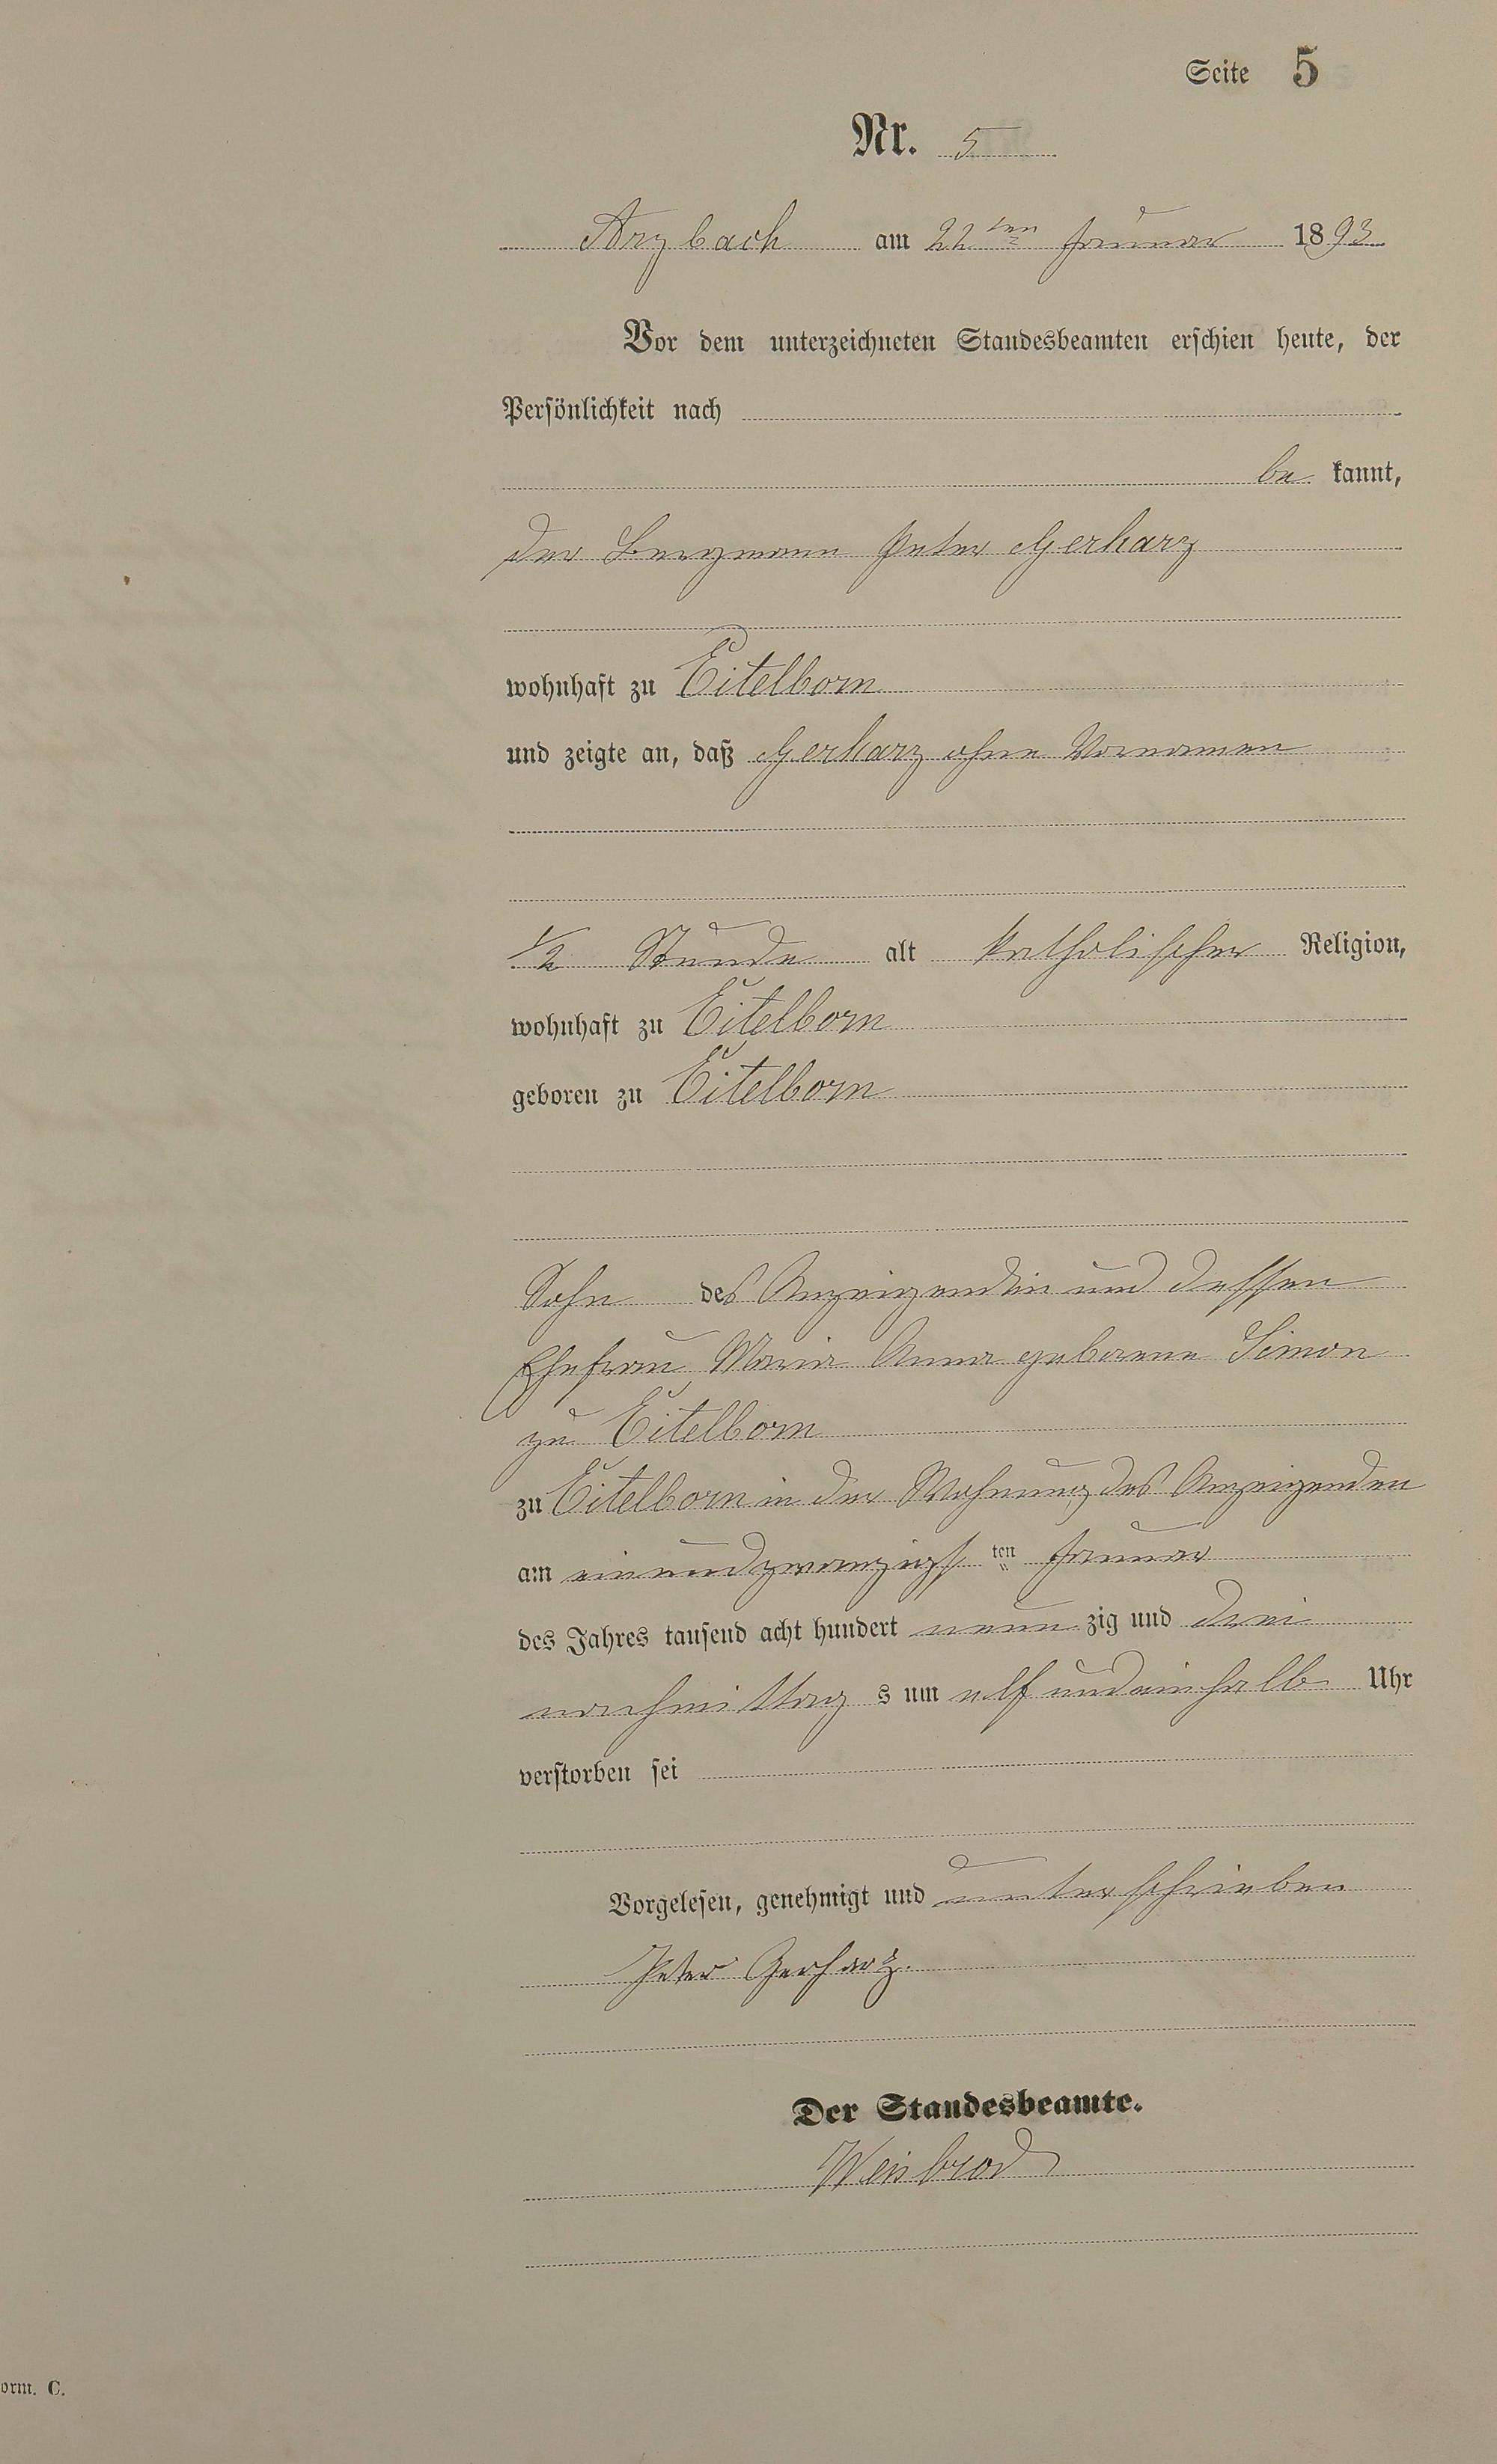 Seite 5
Nr. 5
Arzbach am 22ten Januar 1893
Vor dem unterzeichneten Standesbeamten erschien heute, der
Persönlichkeit nach
be kannt,
der Bergmann Peter Gerharz
wohnhaft zu Eitelborn
und zeigte an, daß Gerharz ohne Vornamen
1/2 Stunde alt katholischer Religion,
wohnhaft zu Eitelborn
geboren zu Eitelborn
Sohn des Anzeigenden und dessen
Ehefrau Maria Anna geborene Simon
zu Eitelborn
zu Eitelborn in der Wohnung des Anzeigenden
am einundzwanzigsten Januar
des Jahres tausend acht hundert neun zig und drei
nachmittag s um elf undeinhalb Uhr
verstorben sei
Vorgelesen, genehmigt und unterschrieben
Peter Gerharz.
Der Standesbeamte.
Weisbrod
orm. C.